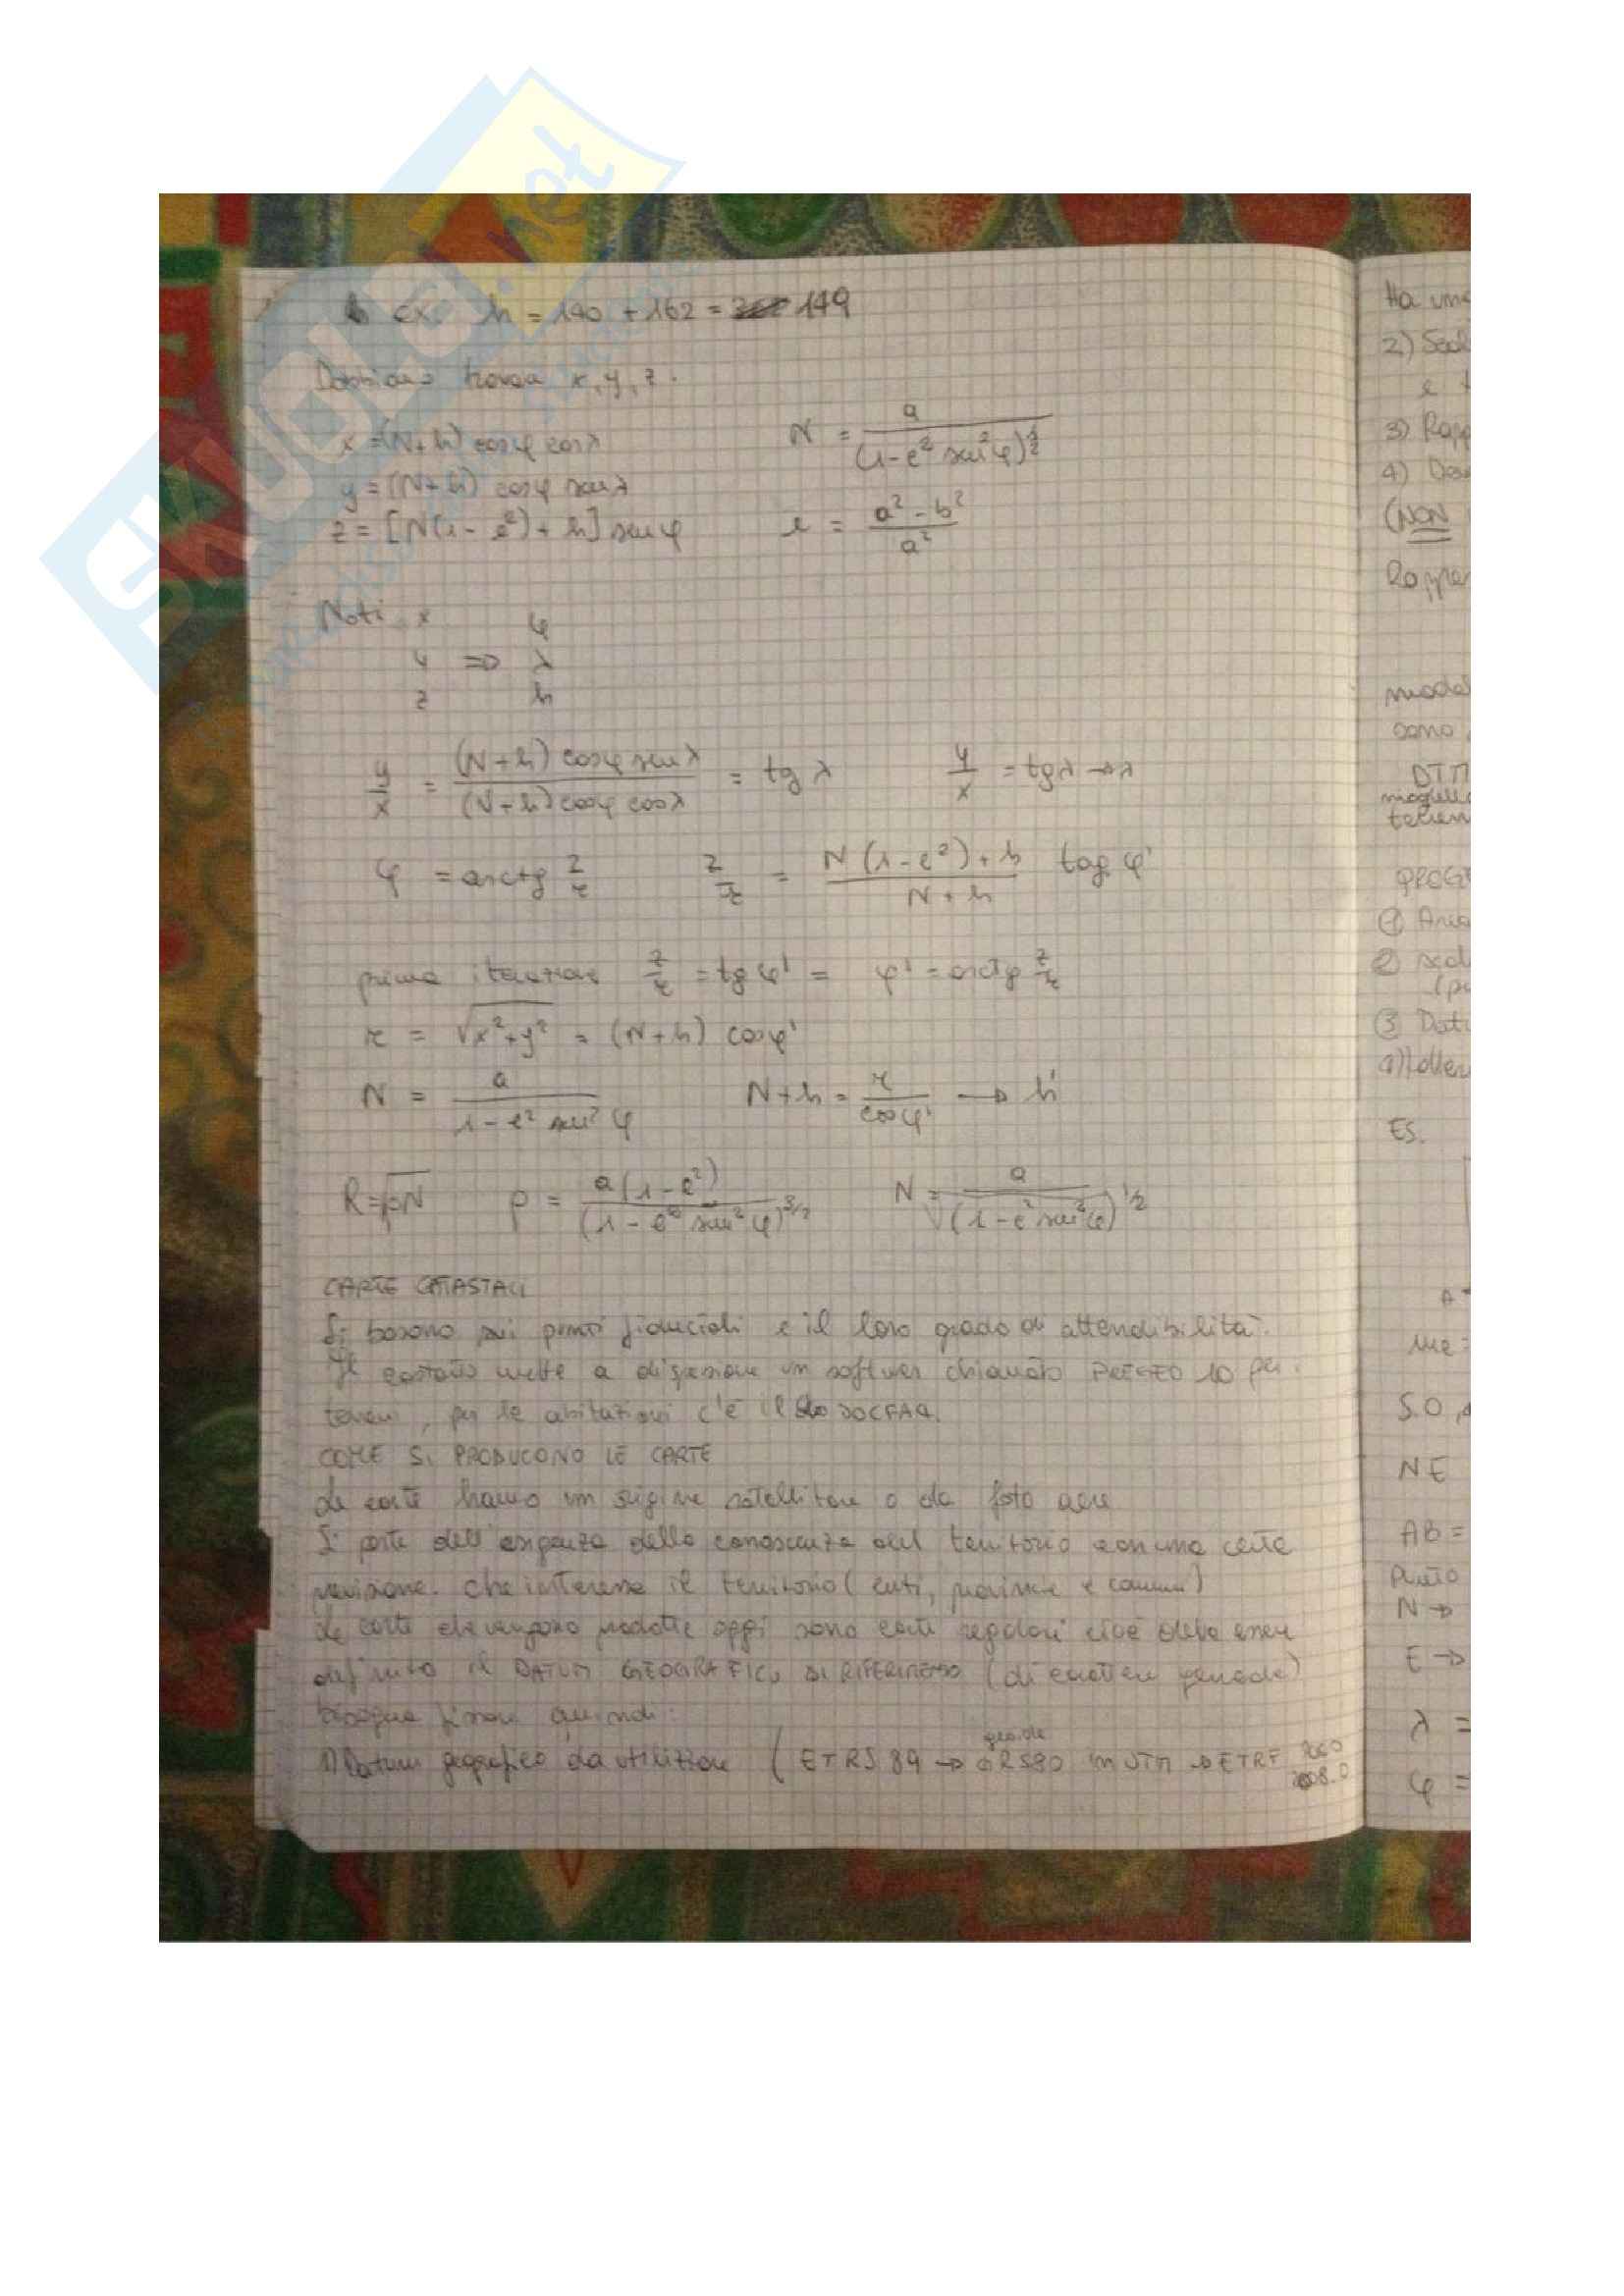 SKUOLA.net
ex. h = 140 + 162 = 149
Dobbiamo trovare x, y, z.
x = (N+h) cosφ cosλ
N = a / (1-e² sen²φ)^½
y = (N+h) cosφ senλ
z = [N(1-e²)+h] senφ
e = a²-b² / a²
Noti x φ
y => λ
z h
y/x = (N+h) cosφ senλ / (N+h) cosφ cosλ = tg λ
y/x = tgλ → λ
φ = arctg z/r
z/r = N(1-e²)+h / N+h tag φ'
prima iterazione z/r = tg φ' = φ' = arctg z/r
r = √x²+y² = (N+h) cosφ'
N = a / 1-e² sen²φ
N+h = r / cosφ' → h'
R=√ρN
ρ = a(1-e²) / (1-e² sen²φ)^3/2
N = a / √(1-e² sen²φ)^1/2
CARTE CATASTALI
Si basano sui punti fiduciali e il loro grado di attendibilità.
Il catasto mette a disposizione un softwer chiamato PREGEO 10 per i
terreni, per le abitazioni c'è il DOCFAQ.
COME SI PRODUCONO LE CARTE
Le carte hanno un origine satellitare o da foto aeree
Si parte dell'esigenza della conoscenza del territorio con una certa
precisione. che interessa il territorio (enti, province e comuni)
Le carte che vengono prodotte oggi sono carte regolari cioè deve essere
definito il DATUM GEOGRAFICO DI RIFERIMENTO (di carattere generale)
bisogna fissare quindi:
1) Datum geografico da utilizzare (ETRS89 → GRS80 in UTM → ETRF 2000
geoide
2008.0
Ha una
2)
3) Rapp
4)
(NON
sono
DTM
PROGE
①
②
③ Dati
ES.
A
S.O
NE
AB =
Punto
N →
E →
λ =
φ =